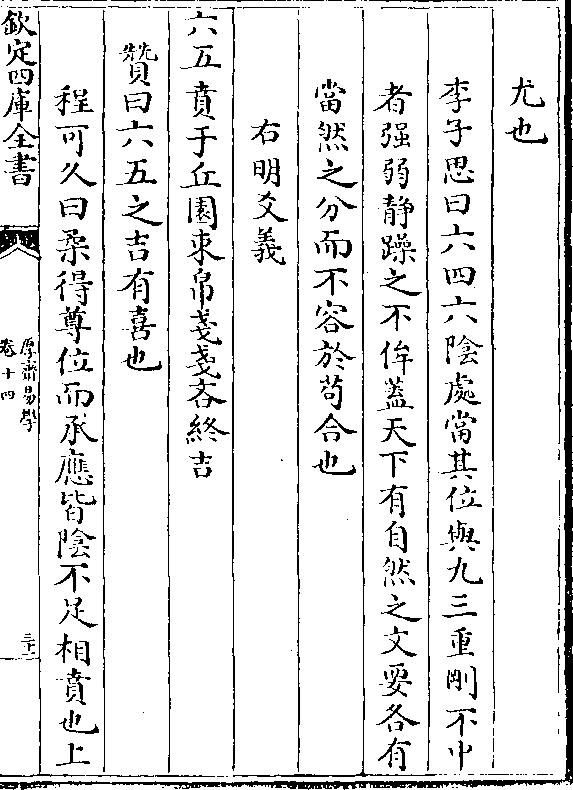 尤也
李子思曰六四六陰處當其位與九三重剛不中
者强弱静躁之不侔蓋天下有自然之文要各有
當然之分而不容於苟合也
右明爻義
六五賁于丘園束帛戔戔吝終吉
贊曰六五之吉有喜也
程可久曰柔得尊位而承應皆陰不足相賁也上
欽定四庫全書
厚齋易學
卷十四